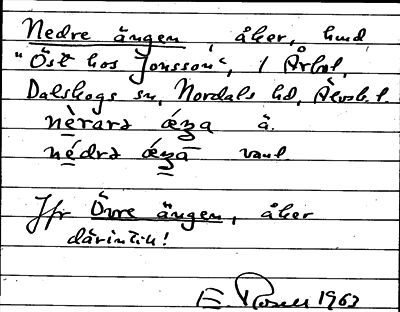 Nedre ängen, åker, hmd,
"Öst hos Jonsson", i Årbol,
Dalskogs sn, Nordals hd, Älvsb. l.
nèrarə ǽŋa ä.
nédrə ǽŋa vanl.
Jfr Övre ängen, åker
därintill!
E. Rosell 1963